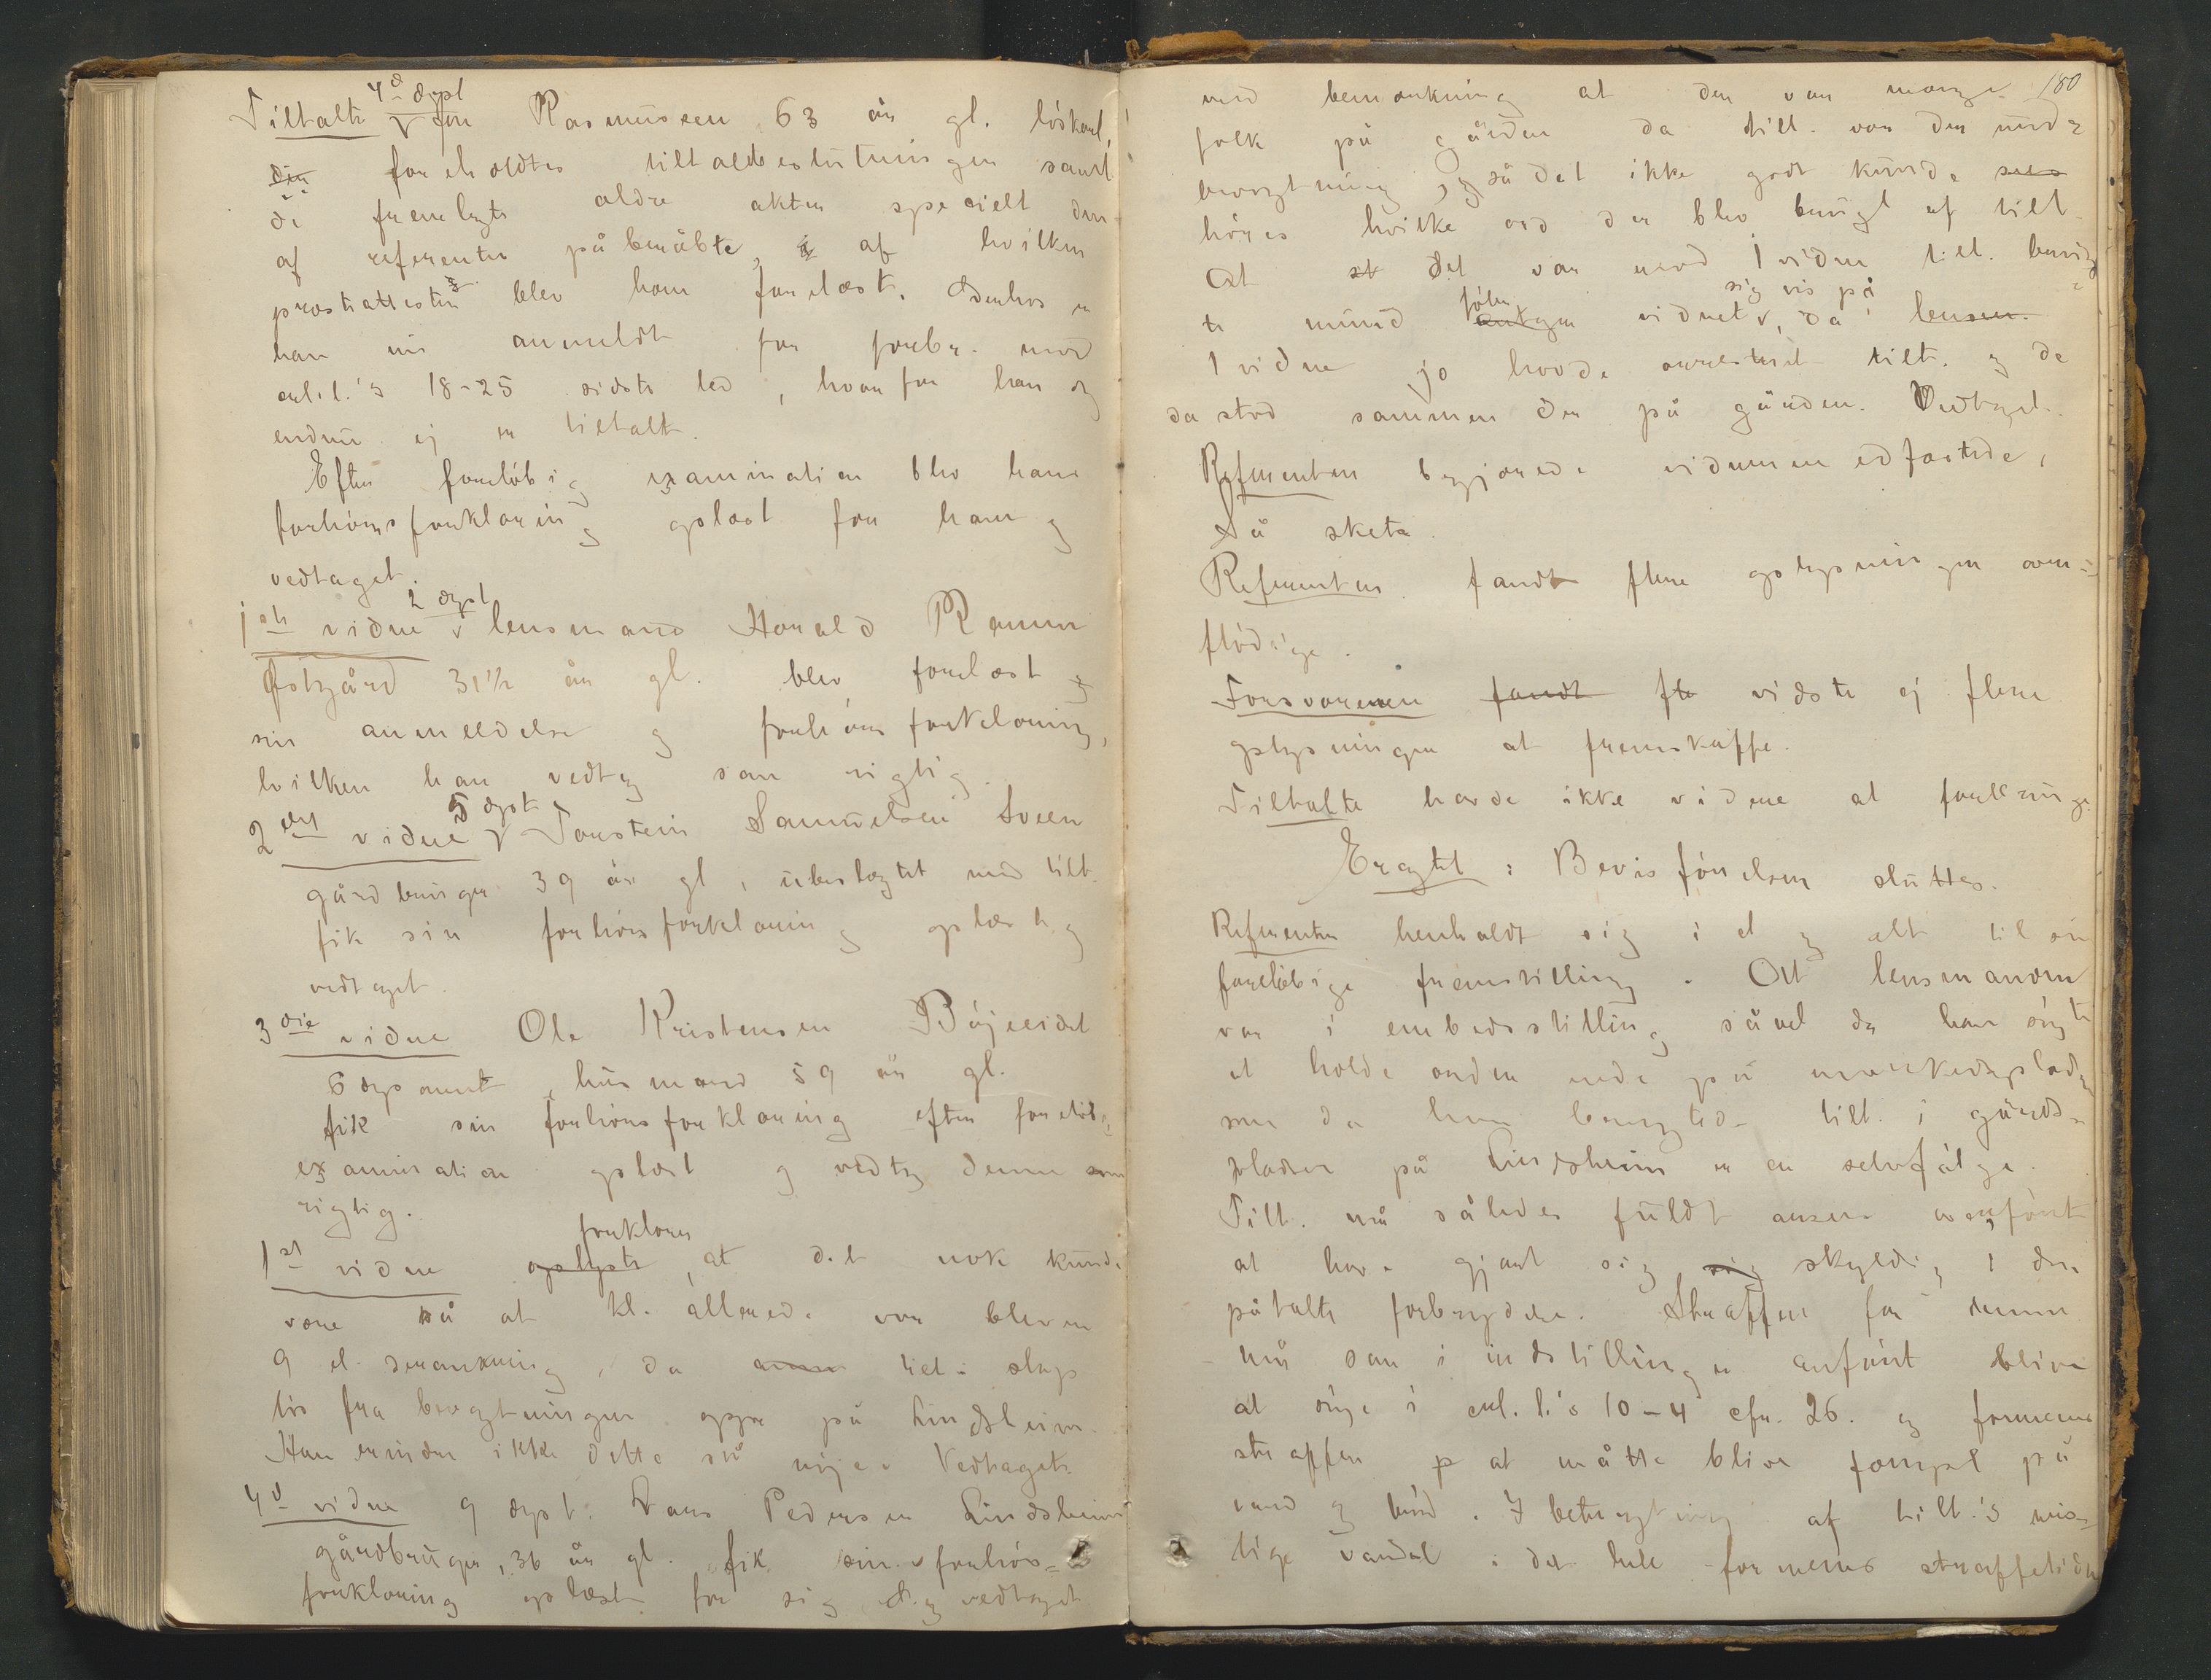 4de dept
Tiltalte Jon Rasmussen 63 år gl. løskarl,
den foreholdtes tiltalebeslutningen samt
de fremlagte ældre akter specielt den
af referenten påberåbte, af hvilken
præsteattesten blev ham forelæst. Desuden er
han nu anmeldt for forbr. mod
crl.l.'s 18-25 sidste led, hvorfor han og
endnu ej er tiltalt.
Efter foreløbig examination blev hans
forhørsforklaring oplæst for ham og
vedtaget.
2 dept
1ste vidne lensmand Harald Ramm
Østgård 31½ år gl. blev forelæst
sin anmeldelse og forhørsforklaring,
hvilken han vedtog som rigtig.
5 dept
2det vidne Torstein Samuelsen Sveen
gårdbruger 39 år gl, ubeslægtet med tilt.
fik sin forhørsforklaring oplæst og
vedtaget.
3die vidne Ole Kristensen Bøjeeidet
6 deponent, husmand 59 år gl.
fik sin forhørsforklaring efter foreløb.
examination oplæst og vedtog denne som
rigtig.
forklarer
1ste vidne oplyste, at det nok kunde
være så at kl. allerede var bleven
9 el. deromkring, da tilt. slap
løs fra bevogtningen oppe på Lindsheim.
Han erindrer ikke dette så nøje. Vedtaget.
4de vidne 9 dept. Hans Pedersen Lindsheim
gårdbruger, 36 år gl. fik sin forhørs=
forklaring oplæst for sig og vedtaget
180
med bemærkning at der var mange
folk på gården da tilt. var der under
bevogtning, og så det ikke godt kunde sees
høres hvilke ord der blev brugt af tilt.
At at det var mod 1 vidne tilt. brug=
føler sig vis på
te mund antager vidnet, da lensm.
1 vidne jo havde arresteret tilt. og de
da stod sammen der på gården. Vedtaget.
Referenten begjærede vidnerne edfæstede,
Så skete.
Referenten fandt flere oplysninger over=
flødige.
Forsvareren fandt fle vidste ej flere
oplysninger at fremskaffe.
Tiltalte havde ikke vidner at forlange.
Eragtet: Bevisførelsen sluttes.
Referenten henholdt sig i et og alt til sin
foreløbige fremstilling. At lensmanden
var i embedsstilling såvel da han søgte
at holde orden nede på markedspladsen
som da han bevogtede tilt. i gårds=
pladsen på Lindsheim er en selvfølge.
Tilt. må således fuldt ansees overført
at have gjort sig sig skyldig i den
påtalte forbrydelse. Straffen for denne
må som i indstillingen anført blive
at søge i crl.l.'s 10-4 cfr. 26. og formenes
straffen p at måtte blive fængsel på
vand og brød. I betragtning af tilt.'s mis=
lige vandel i det hele formenes straffetiden